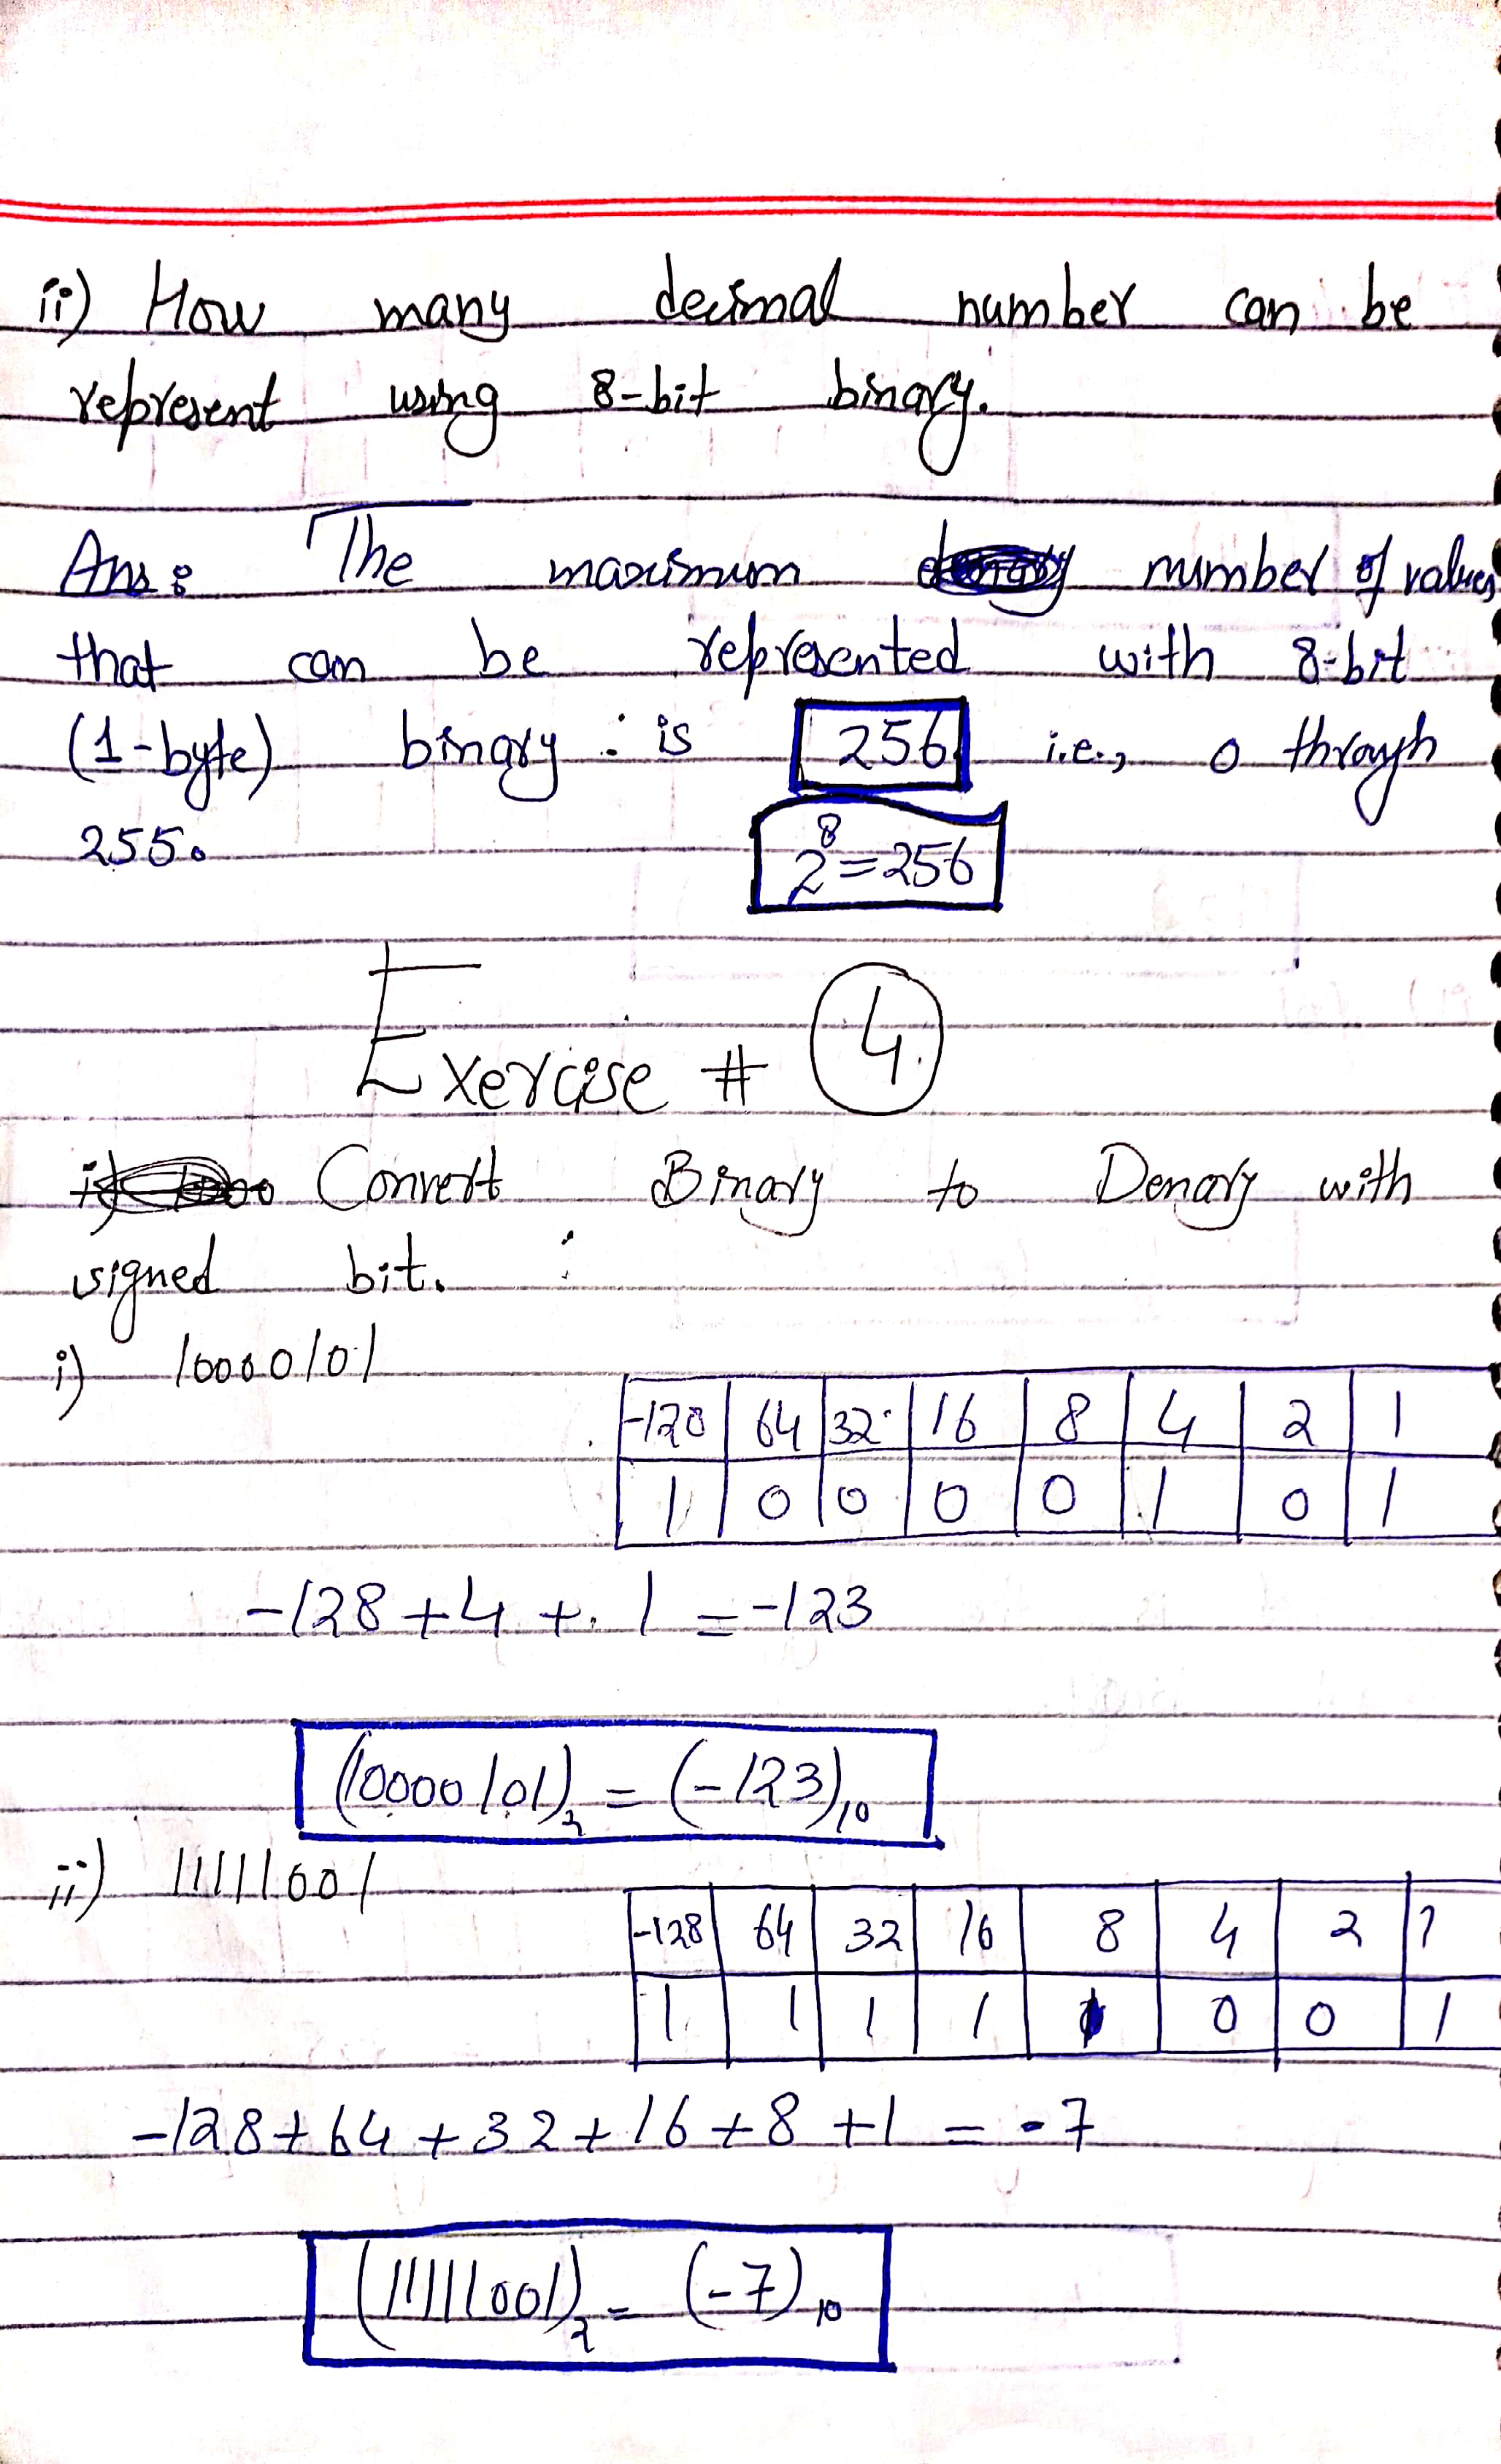 ii) How many decimal number can be
represent using 8-bit binary.
Ans: The maximum number of values
that can be represented with 8-bit
(1-byte) binary is 256 i.e., 0 through
255.
2⁸=256
Exercise # 4
Convert Binary to Denary with
signed bit.
i) 10000101
-128 64 32 16 8 4 2 1
1 0 0 0 0 1 0 1
-128+4+1=-123
(10000101)₂ = (-123)₁₀
ii) 11111001
-128 64 32 16 8 4 2 1
1 1 1 1 1 0 0 1
-128+64+32+16+8+1 = -7
(11111001)₂ = (-7)₁₀